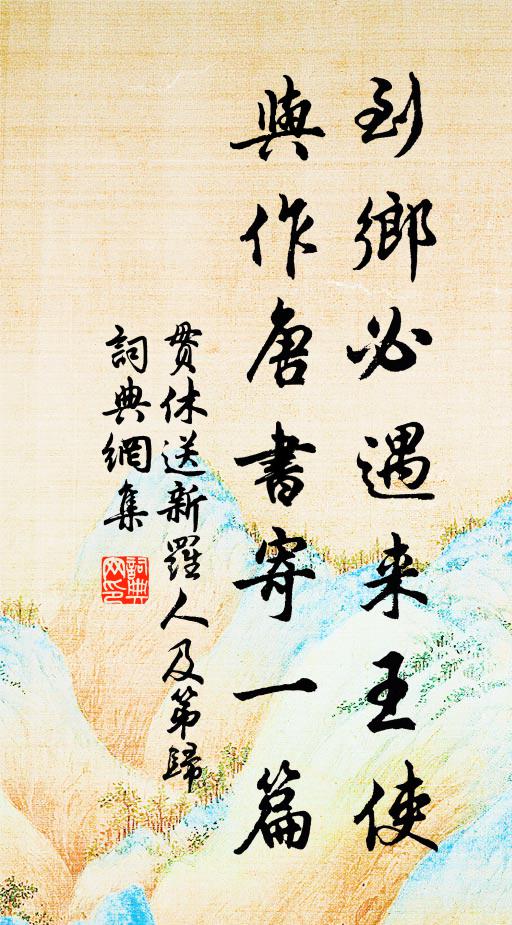 到鄉必遇来王使
與作唐書寄一篇
貫休送新羅人及第歸
詞典網集
詞典
网印